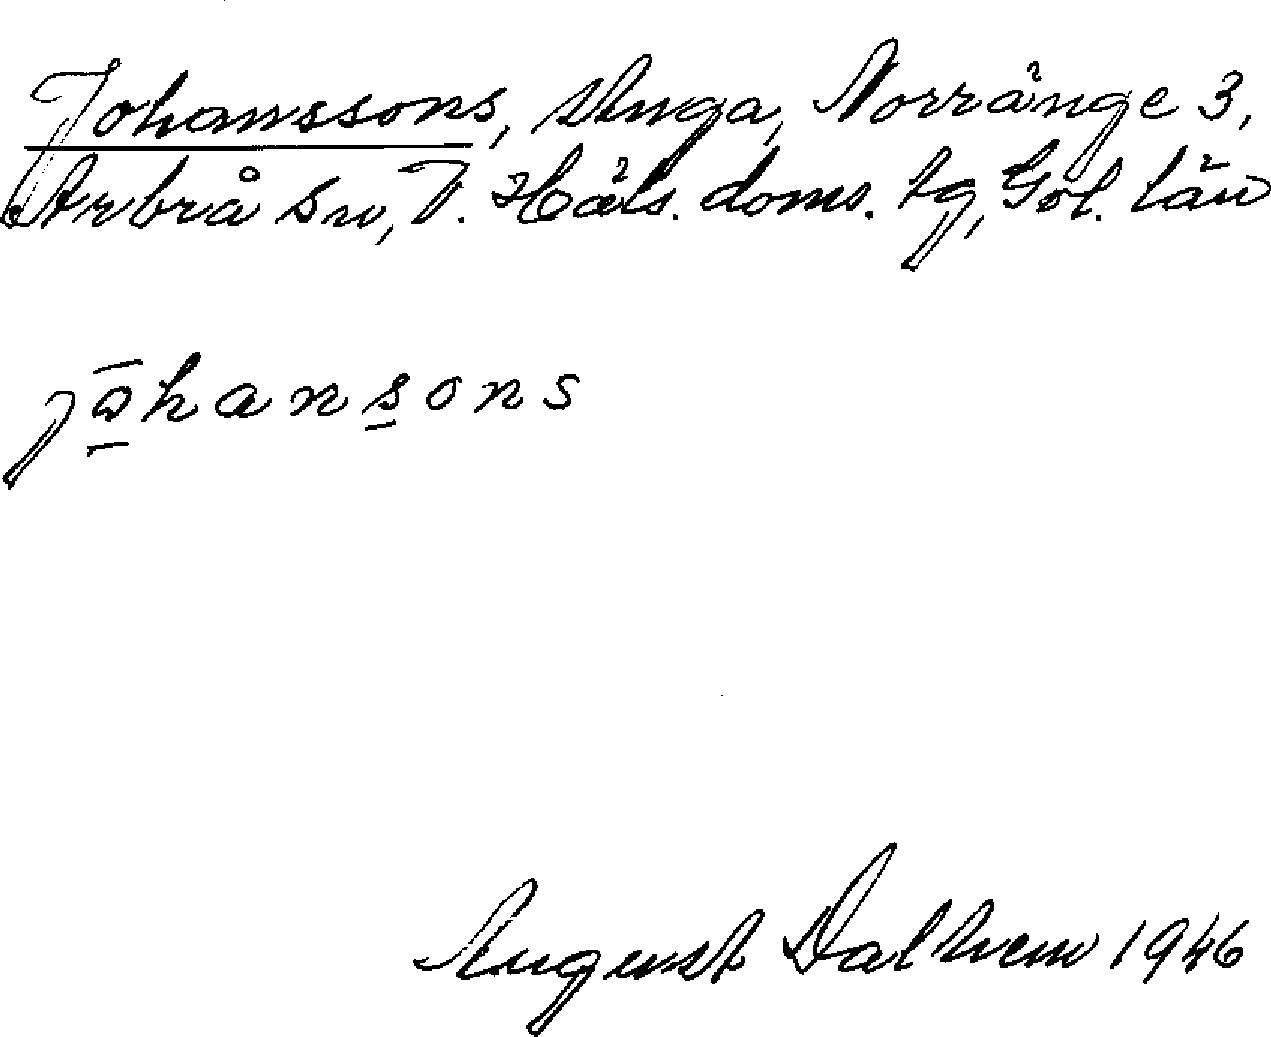 Johanssons, Norränge 3,
Arbrå sn, V. Häls. doms. tg, län
jōhansons
August 1946